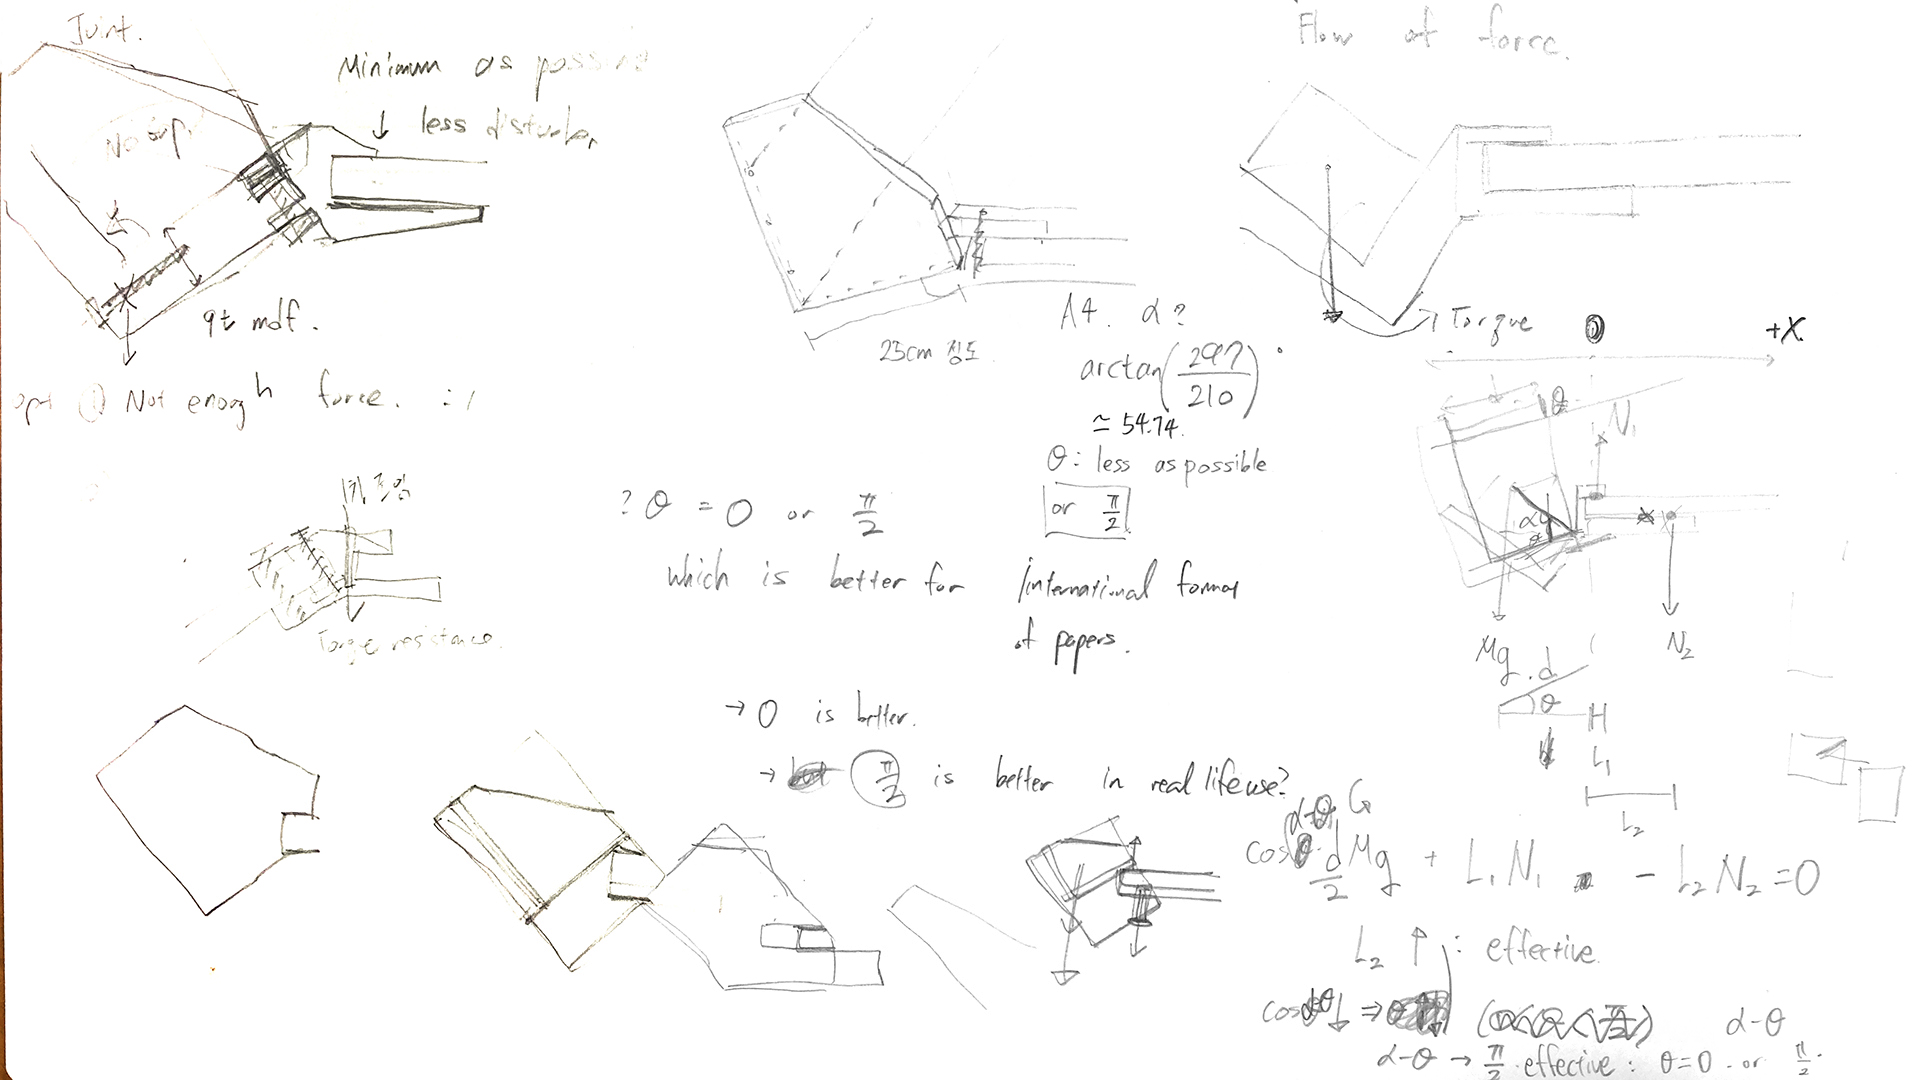 Joint.
Minimum as possible
less disturber
No
9t mdf.
opt ① Not enough force. :/
Torqe resistance.
25cm 정도
A4. α?
arctan(297/210)°
≃ 54.74.
θ: less as possible
or π/2
? θ = 0 or π/2
which is better for international format
of papers.
→ 0 is better.
→ π/2 is better in real life use?
Flow of force.
Torque
0
+X
d
θ
N₁
α
Mg
N₂
d
θ
L₁
L₂
α-θ
cos · d/2 Mg + L₁N₁ - L₂N₂ = 0
L₂ ↑ : effective.
α-θ
α-θ → π/2 effective : θ=0 or π/2.